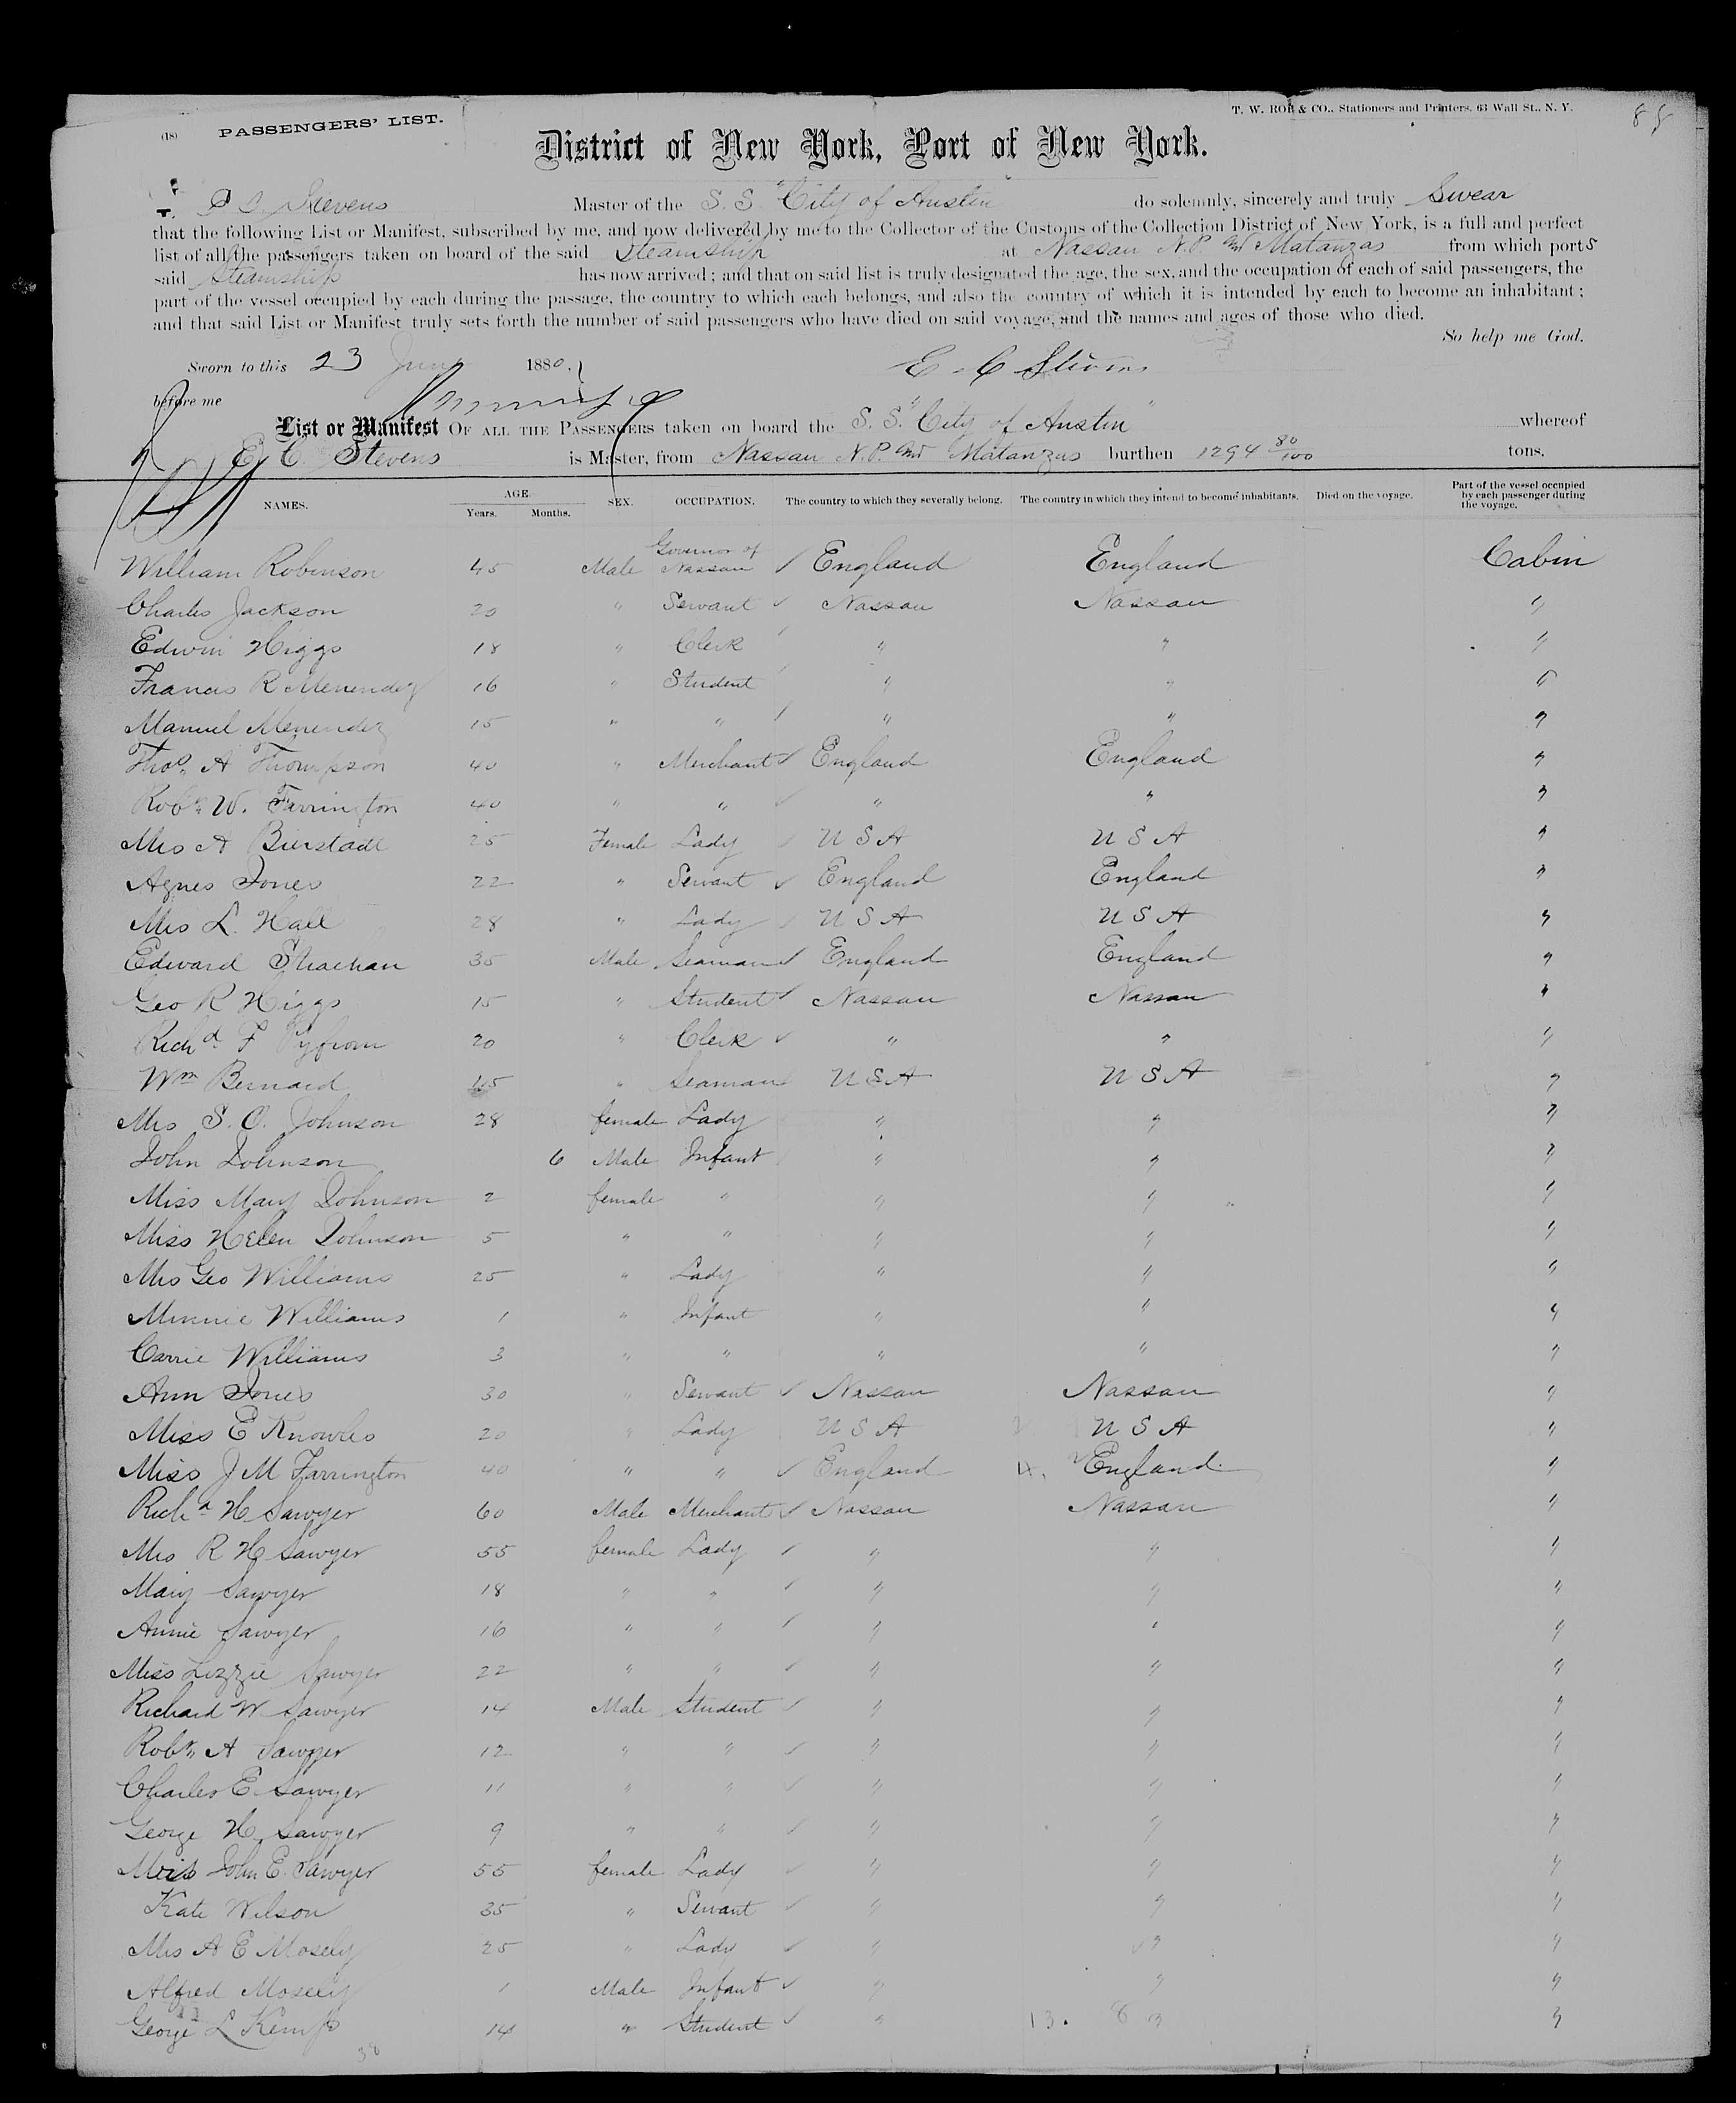 (18) PASSENGERS' LIST.
T. W. ROE & CO., Stationers and Printers, 63 Wall St., N. Y.
District of New York, Port of New York.
I, Stevens Master of the S. S. "City of Austin" do solemnly, sincerely and truly Swear
that the following List or Manifest, subscribed by me, and now delivered by me to the Collector of the Customs of the Collection District of New York, is a full and perfect
list of all the passengers taken on board of the said Steamship at Nassau N.P. and Matanzas from which ports
said Steamship has now arrived; and that on said list is truly designated the age, the sex, and the occupation of each of said passengers, the
part of the vessel occupied by each during the passage, the country to which each belongs, and also the country of which it is intended by each to become an inhabitant;
and that said List or Manifest truly sets forth the number of said passengers who have died on said voyage, and the names and ages of those who died.
So help me God.
Sworn to this 23 June 1880. E. C. Stevens
before me
List or Manifest OF ALL THE PASSENGERS taken on board the S. S. "City of Austin" whereof
E. C. Stevens is Master, from Nassau N.P. and Matanzas burthen 1294 80/100 tons.
NAMES. AGE. Years. Months. SEX. OCCUPATION. The country to which they severally belong. The country in which they intend to become inhabitants. Died on the voyage. Part of the vessel occupied by each passenger during the voyage.
William Robinson 45 Male Governor of Nassau ✓ England England Cabin
Charles Jackson 20 " Servant ✓ Nassau Nassau "
Edwin Higgs 18 " Clerk ✓ " " "
Francis R Menendez 16 " Student ✓ " " "
Manuel Menendez 15 " " ✓ " " "
Thos. A Thompson 40 " Merchant ✓ England England "
Robt. W. Farrington 40 " " ✓ " " "
Mrs A Bierstadt 25 Female Lady U S A U S A "
Agnes Jones 22 " Servant ✓ England England "
Mrs L. Hall 28 " Lady U S A U S A "
Edward Strachan 35 Male Seaman ✓ England England "
Geo R Higgs 15 " Student ✓ Nassau Nassau "
Richd F Pyfrom 20 " Clerk ✓ " " "
Wm Bernard " Seaman U S A U S A "
Mrs S. O. Johnson 28 female Lady " " "
John Johnson 6 Male Infant " " "
Miss Mary Johnson 2 female " " " "
Miss Helen Johnson 5 " " " " "
Mrs Geo Williams 25 " Lady " " "
Minnie Williams 1 " Infant " " "
Carrie Williams 3 " " " " "
Ann Jones 30 " Servant ✓ Nassau Nassau "
Miss E Knowles 20 " Lady U S A U S A "
Miss J M Farrington 40 " " ✓ England England "
Richd H Sawyer 60 Male Merchant ✓ Nassau Nassau "
Mrs R H Sawyer 55 female Lady ✓ " " "
Mary Sawyer 18 " " ✓ " " "
Annie Sawyer 16 " " ✓ " " "
Miss Lizzie Sawyer 22 " " ✓ " " "
Richard W Sawyer 14 Male Student ✓ " " "
Robt. A Sawyer 12 " " ✓ " " "
Charles E Sawyer 11 " " ✓ " " "
George H Sawyer 9 " " ✓ " " "
John E. Sawyer 55 female Lady ✓ " " "
Kate Wilson 35 " Servant ✓ " " "
Mrs A E Mosely 25 " Lady ✓ " " "
Alfred Mosely 1 Male Infant ✓ " " "
George L Kemp 14 " Student ✓ " " "
38